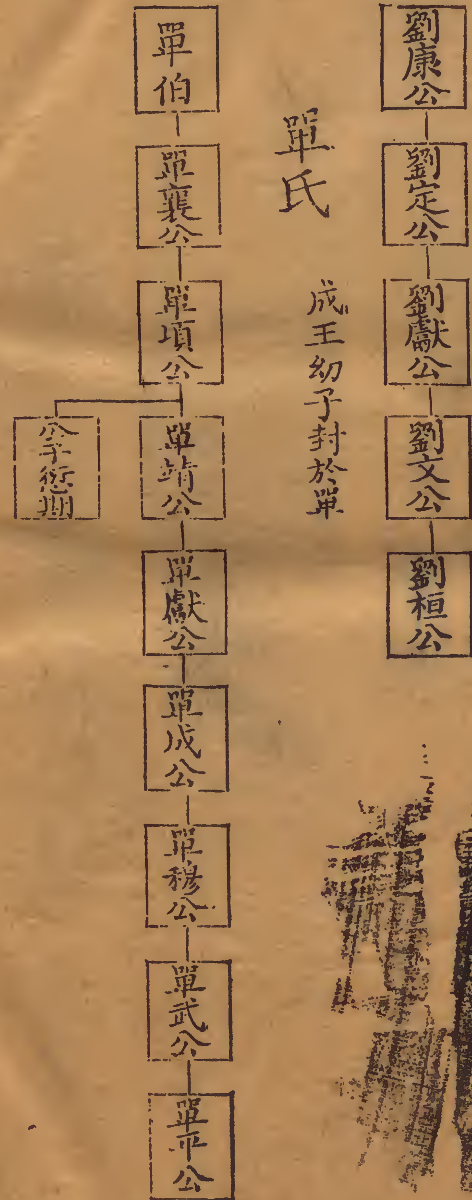 劉康公
劉定公
劉獻公
劉文公
劉桓公
單氏
成王幼子封於單
單伯
單襄公
單頃公
單靖公
單獻公
單成公
單穆公
單武公
單平公